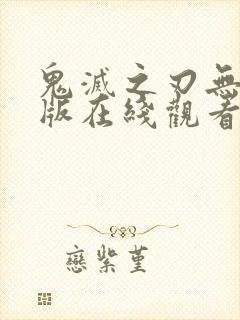 鬼滅之刃無
版在綫觀看
戀紫堇